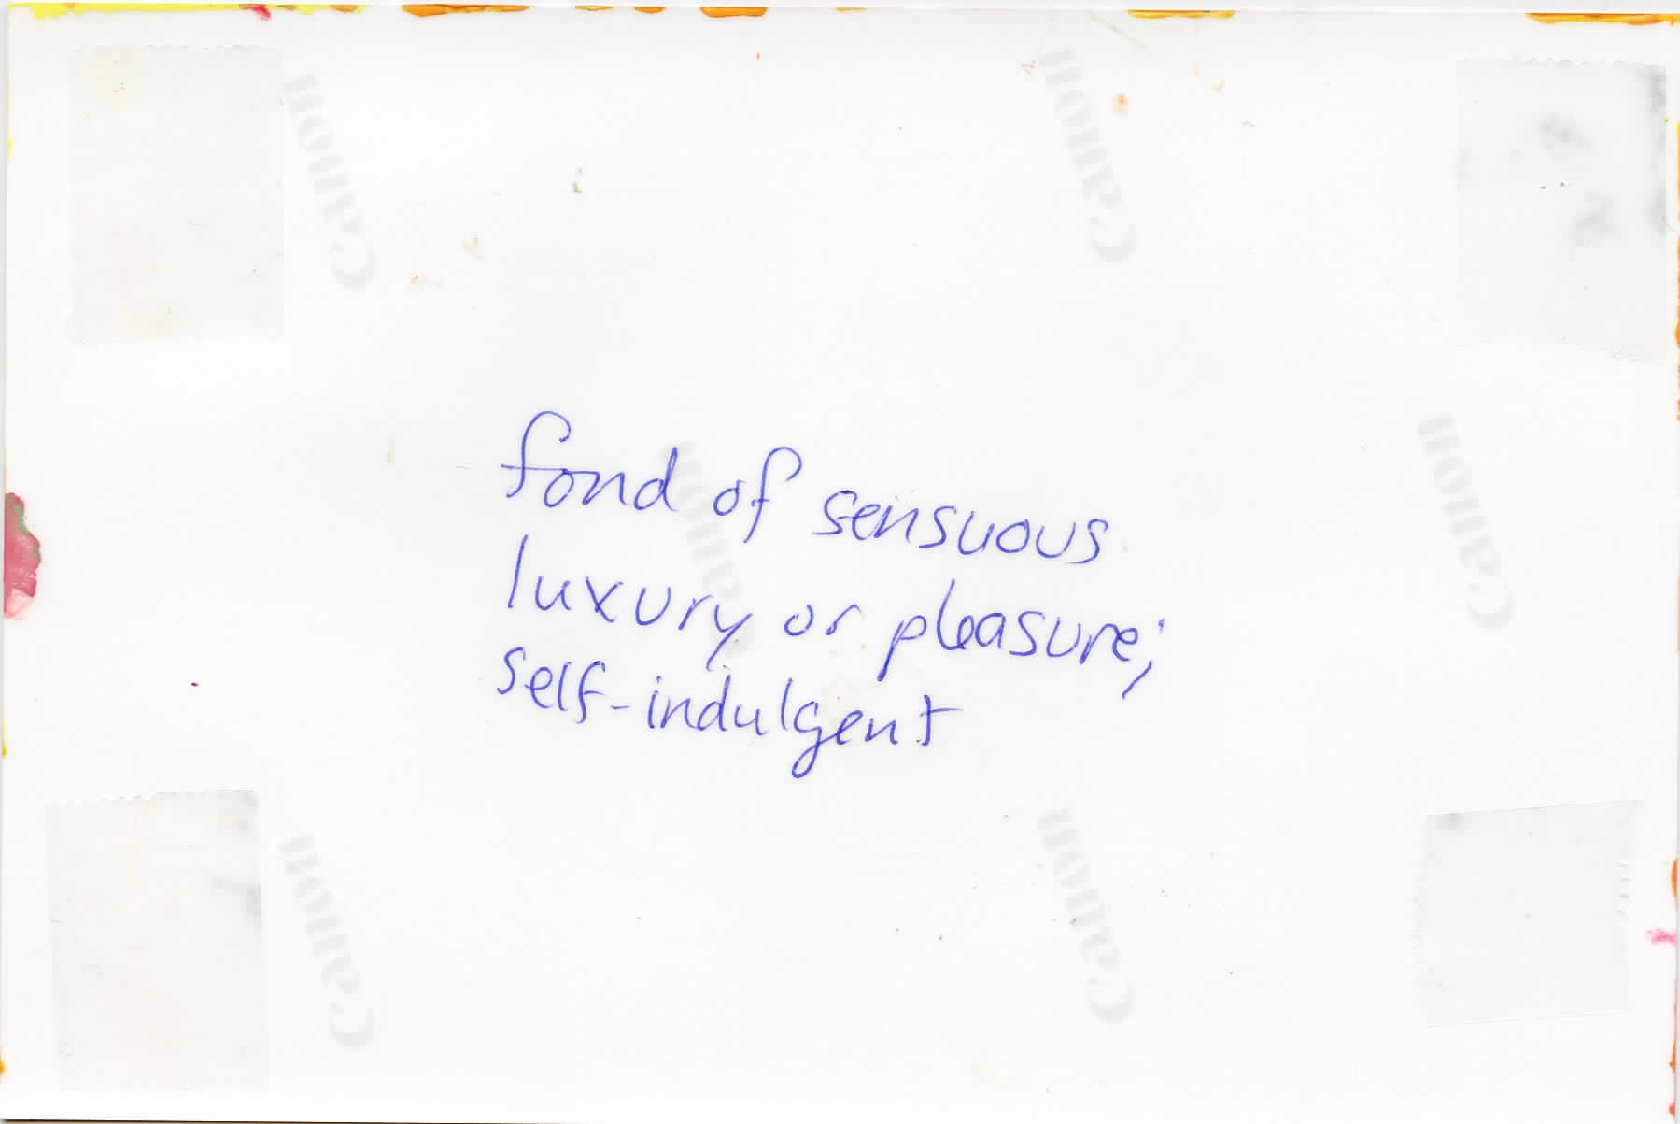 fond of sensuous
luxury or pleasure;
self-indulgent
Canon
Canon
Canon
Canon
Canon
Canon